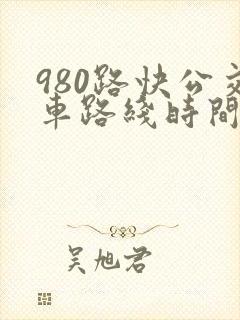 980路快公交
車路綫時間
吴旭君